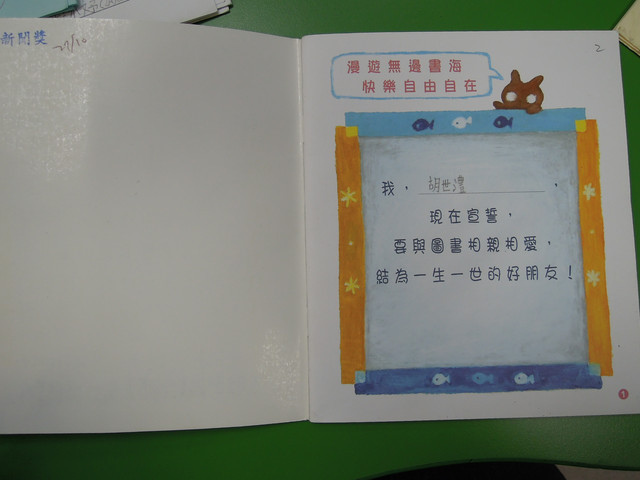 新聞獎
27/10
2
漫遊無邊書海
快樂自由自在
我，胡世澧，
現在宣誓，
要與圖書相親相愛，
結為一生一世的好朋友！
1